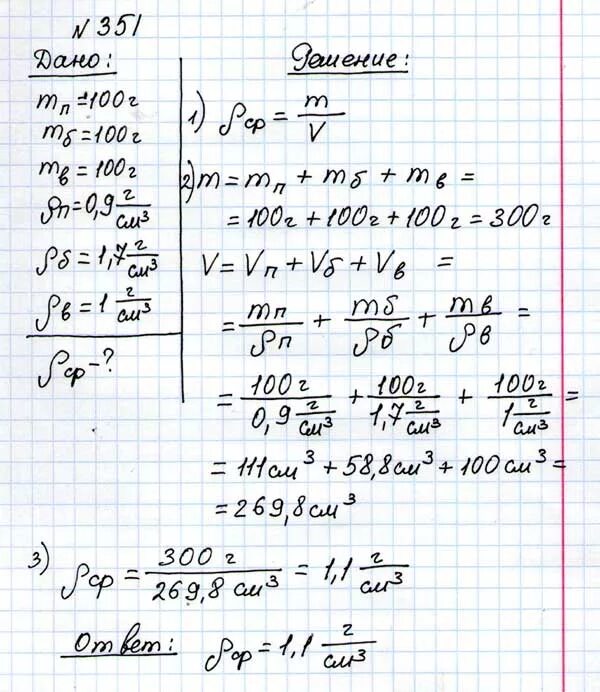 № 351
Дано:
mп = 100 г
mб = 100 г
mв = 100 г
ρп = 0,9 г/см³
ρб = 1,7 г/см³
ρв = 1 г/см³
ρср - ?
Решение:
1) ρср = m/V
2) m = mп + mб + mв =
= 100 г + 100 г + 100 г = 300 г
V = Vп + Vб + Vв =
= mп/ρп + mб/ρб + mв/ρв =
= 100 г/0,9 г/см³ + 100 г/1,7 г/см³ + 100 г/1 г/см³ =
= 111 см³ + 58,8 см³ + 100 см³ =
= 269,8 см³
3) ρср = 300 г/269,8 см³ = 1,1 г/см³
Ответ: ρср = 1,1 г/см³